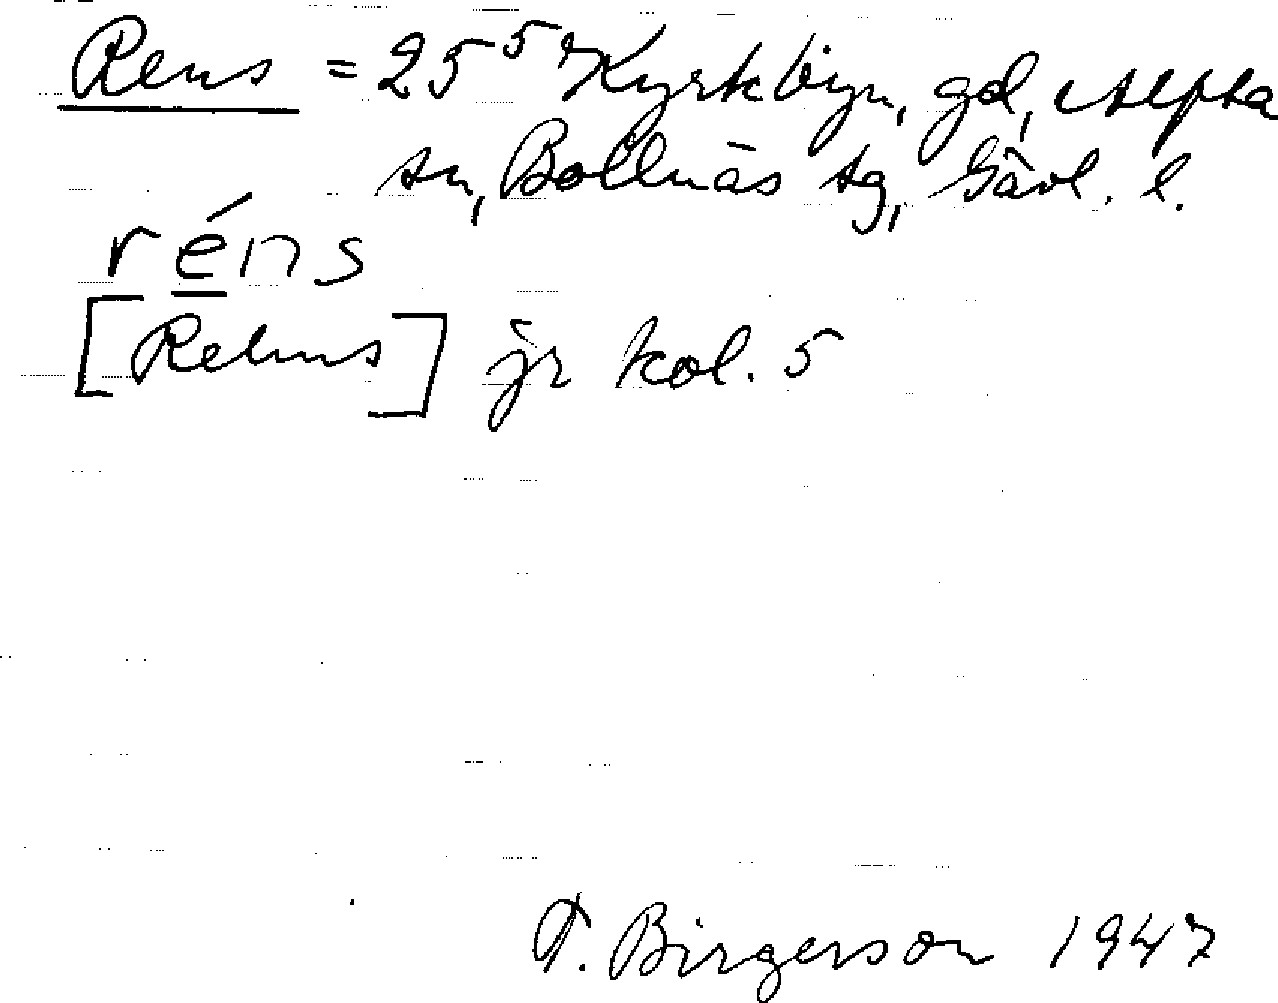 Rens = 25⁵ Kyrkbyn, gd, Alfta
sn, Bollnäs tg, Gävl. l.
réns
[Rehns] jr kol. 5
T. Birgerson 1947